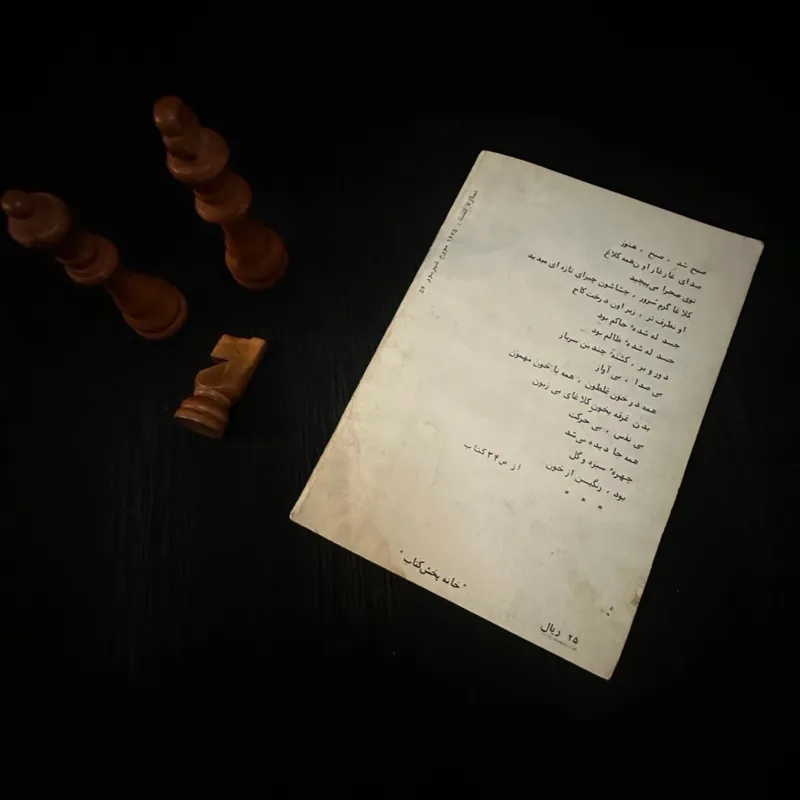 صبح شد ، صبح ، هنوز
صدای غارغار اون همه کلاغ
توی صحرا می‌پیچید
کلاغا گرم غرور ، چشاشون چیزای تازه ای میدید
او نطرف تر ، زیر اون درخت کاج
جسد له شدهٔ حاکم بود
جسد له شدهٔ ظالم بود
دور و بر ، کشتهٔ چندین سرباز
بی صدا ، بی آواز
همه در خون غلطون ، همه با خون مهمون
بدن غرقه بخون کلاغای بی زبون
بی نفس ، بی حرکت
همه جا دیده می‌شد
چهرهٔ سبزه و گل
بود ، رنگین از خون
* * *
از ص ۳۴ کتاب
شماره ثبت : ۱۶۶۵ مورخ شهریور ۵۷
" خانه پخش کتاب "
۲۵ ریال